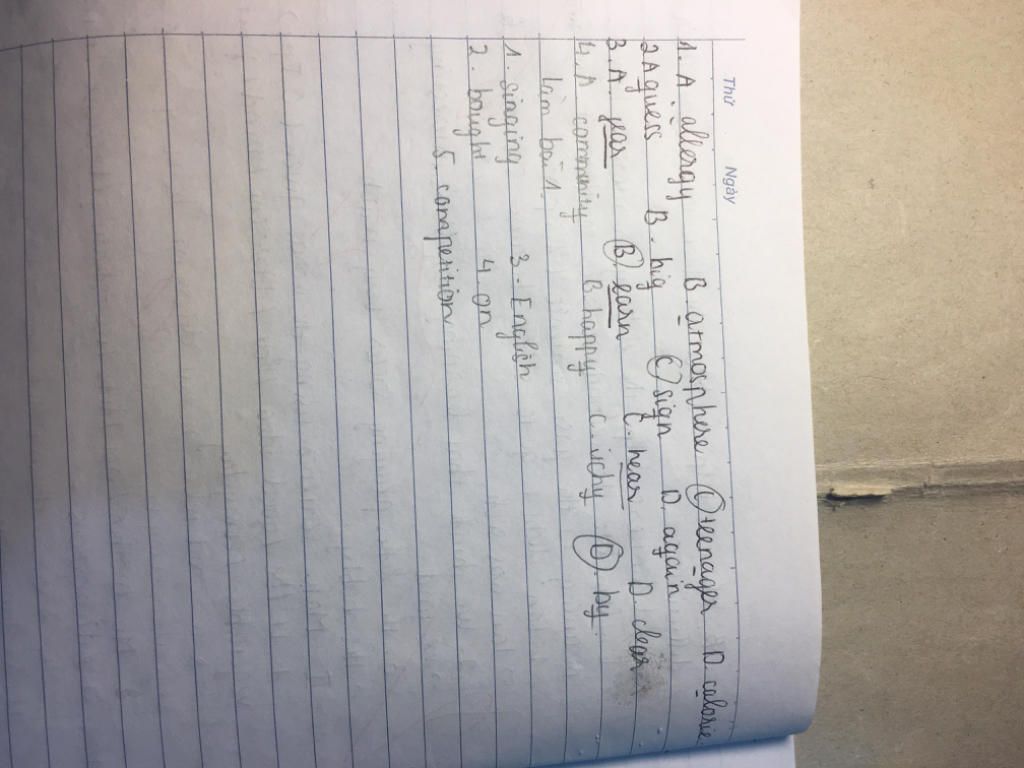 Thứ Ngày
1. A alergy B armosphere C teenager D calorie
2 A guess B. big C sign D. again
3. A. year B earn C. hear D. clear
4. A commnity B happy C. ichy D. by.
Làm bài 1.
1. singing 3. English
2. bought 4. on
5. competition